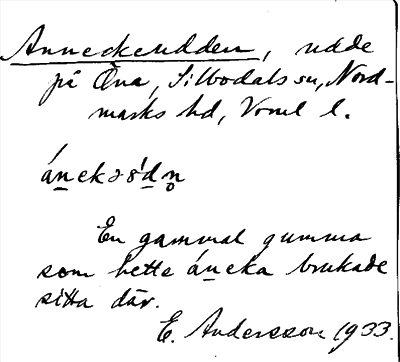 Anneckeudden, udde
på Öna, Silbodals sn, Nord-
marks hd, Vrml l.
áṉekəꞋ8ḏn̥
En gammal gumma
som hette áṉeka brukade
sitta där.
E. Andersson 1933.